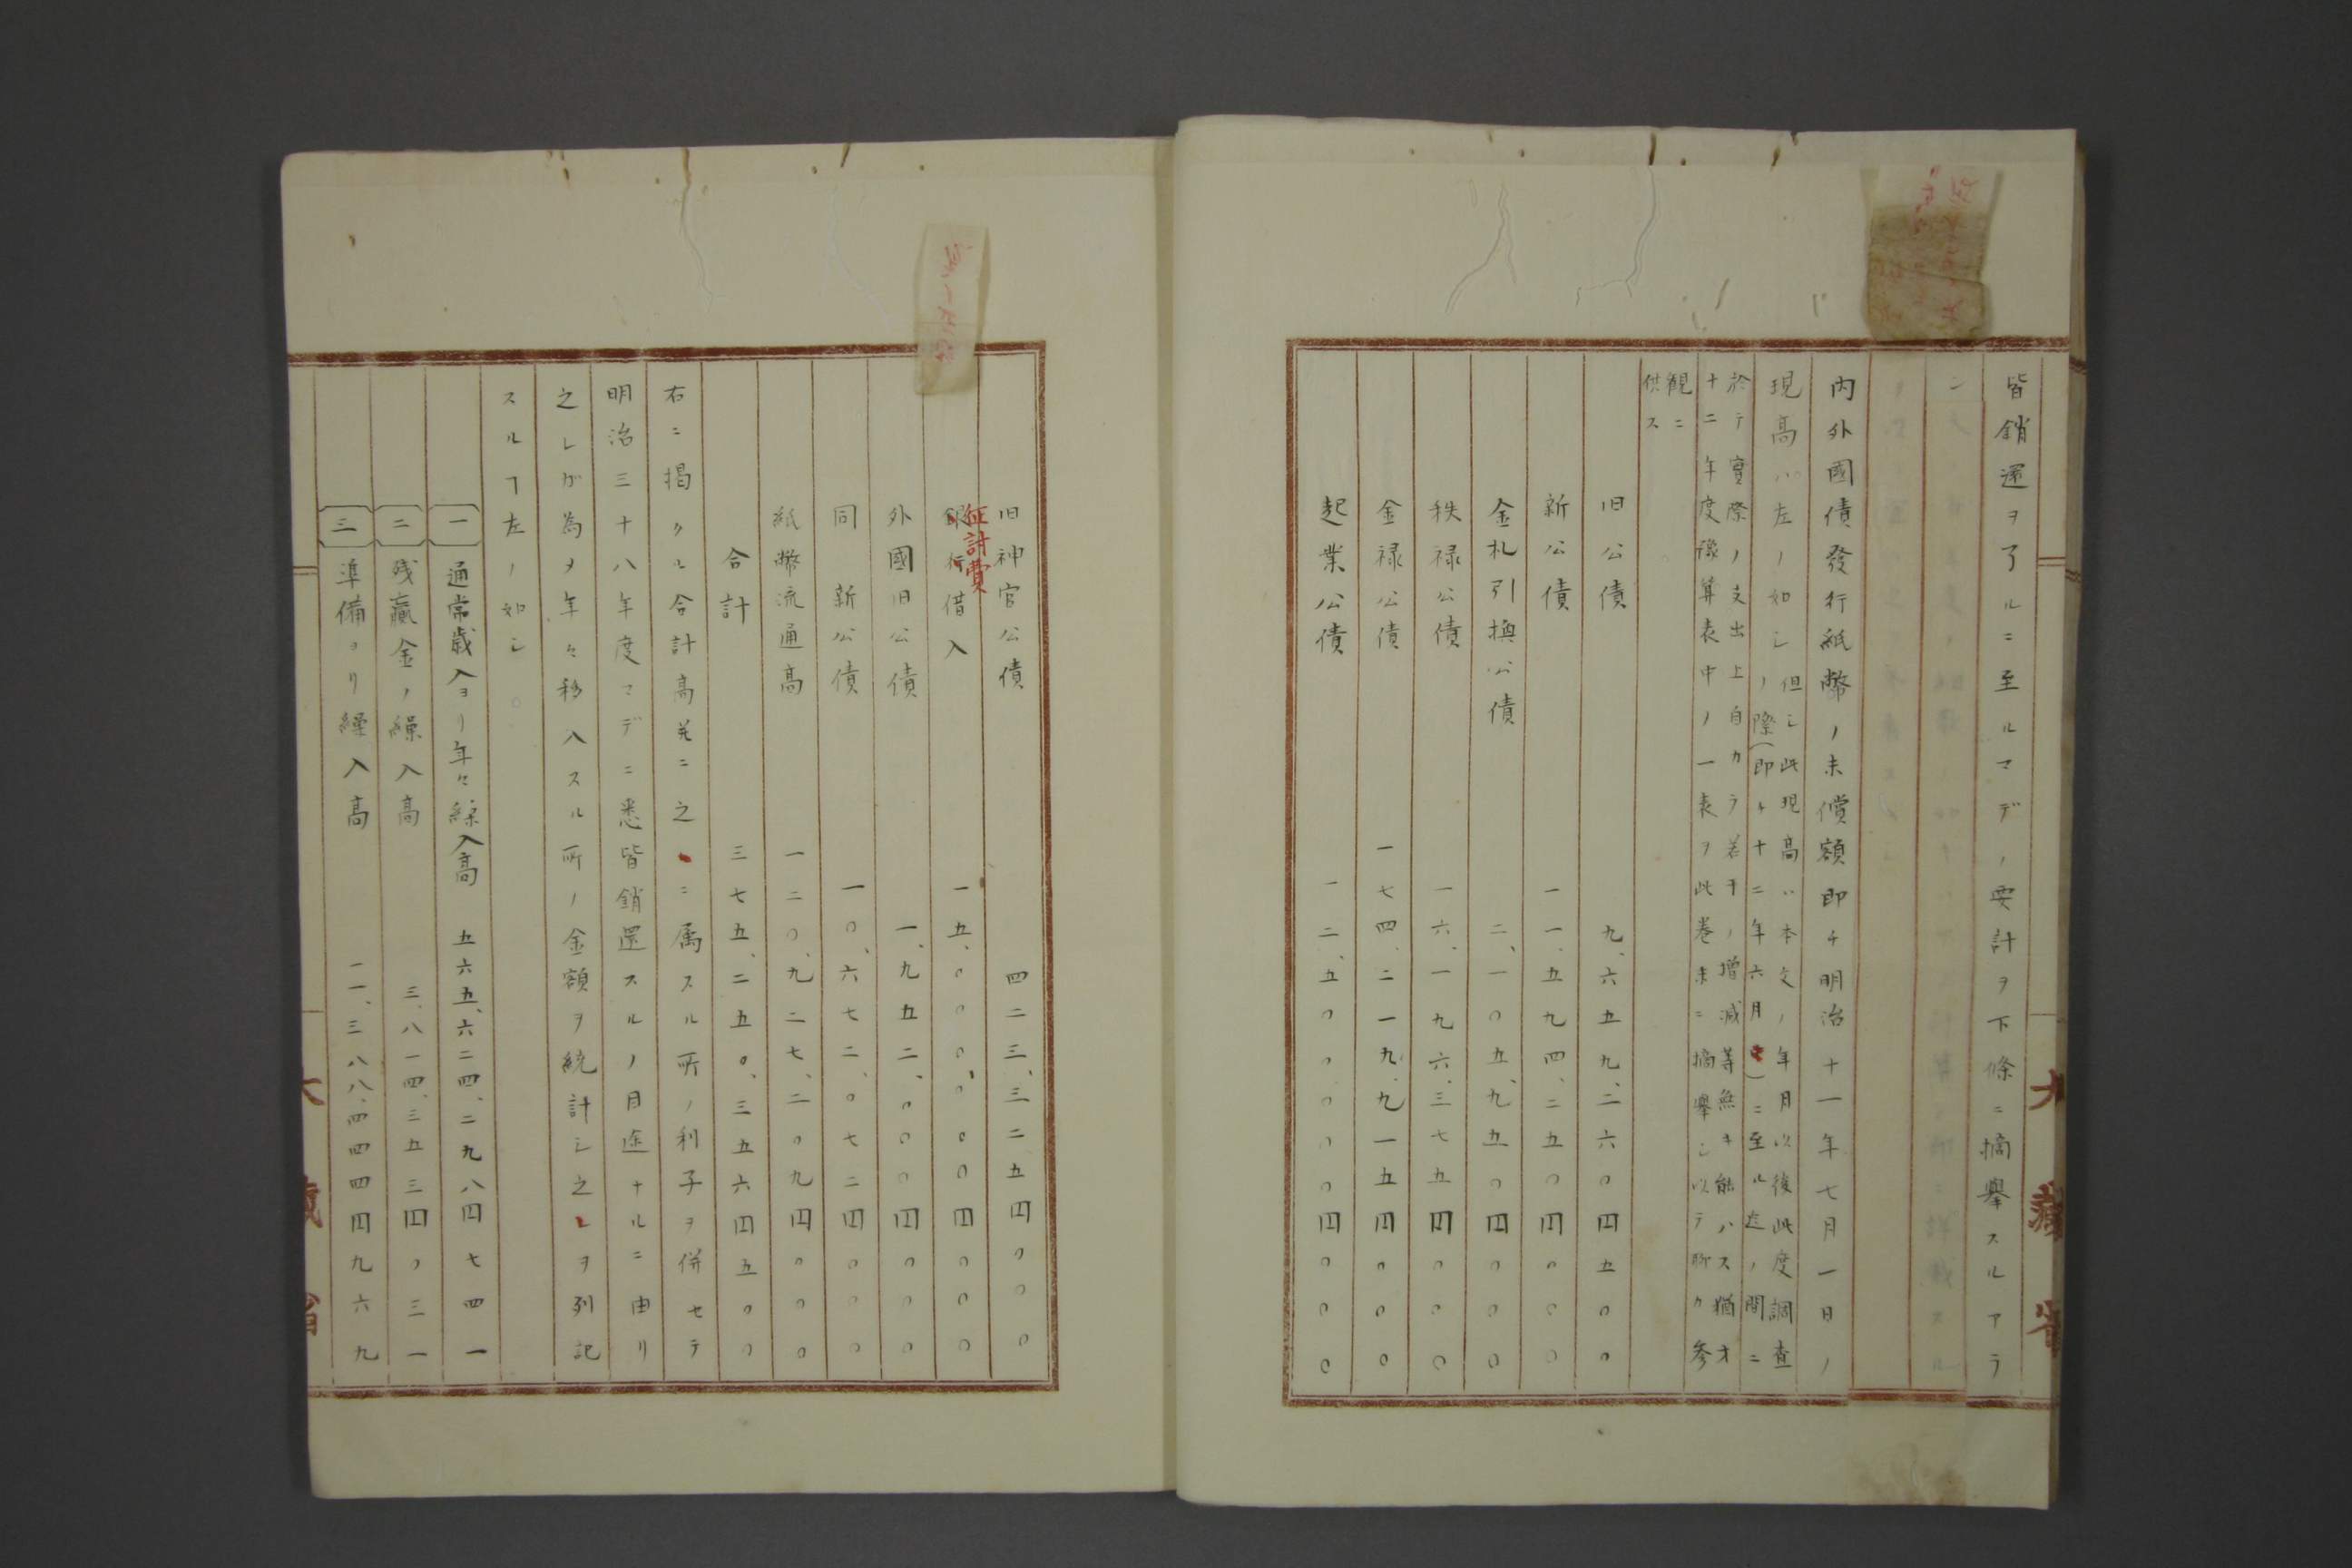 皆銷還ヲ了ルニ至ルマデノ要計ヲ下條ニ摘擧スルアラ
ン
内外國債發行紙幣ノ未償額即チ明治十一年七月一日ノ
現高ハ左ノ如シ
但シ此現高ハ本文ノ年月以後此度調査
ノ際(即チ十二年六月)ニ至ル迄ノ間ニ
於テ實際ノ支出上自カラ若干ノ増減等無キ能ハス猶オ
十二年度豫算表中ノ一表ヲ此巻末ニ摘擧シ以テ聊カ参
観ニ
供ス
旧公債 九、六五九、二六〇四五〇〇
新公債 一一、五九四、二五〇四〇〇〇
金札引換公債 二、一〇五、九五〇四〇〇〇
秩禄公債 一六、一九六、三七五四〇〇〇
金禄公債 一七四、二一九、九一五四〇〇〇
起業公債 一二、五〇〇、〇〇〇四〇〇〇
旧神官公債 四二三、三二五四〇〇〇
征討費
銀行借入 一五、〇〇〇、〇〇〇四〇〇〇
外國旧公債 一、九五二、〇〇〇四〇〇〇
同 新公債 一〇、六七二、〇七二四〇〇〇
紙幣流通高 一二〇、九二七、二〇九四〇〇〇
合計 三七五、二五〇、三五六四五〇〇
右ニ掲クル合計高并ニ之ニ属スル所ノ利子ヲ併セテ
明治三十八年度マデニ悉皆銷還スルノ目途ナルニ由リ
之レガ為ヲ年々移入スル所ノ金額ヲ統計シ之レヲ列記
スルヿ左ノ如シ
一 通常歳入ヨリ年々繰入高 五六五、六二四、二九八四七四一
二 残贏金ノ繰入高 三、八一四、三五三四〇三一
三 準備ヨリ繰入高 二一、三八八、四四四四九六九
大藏省
大藏省